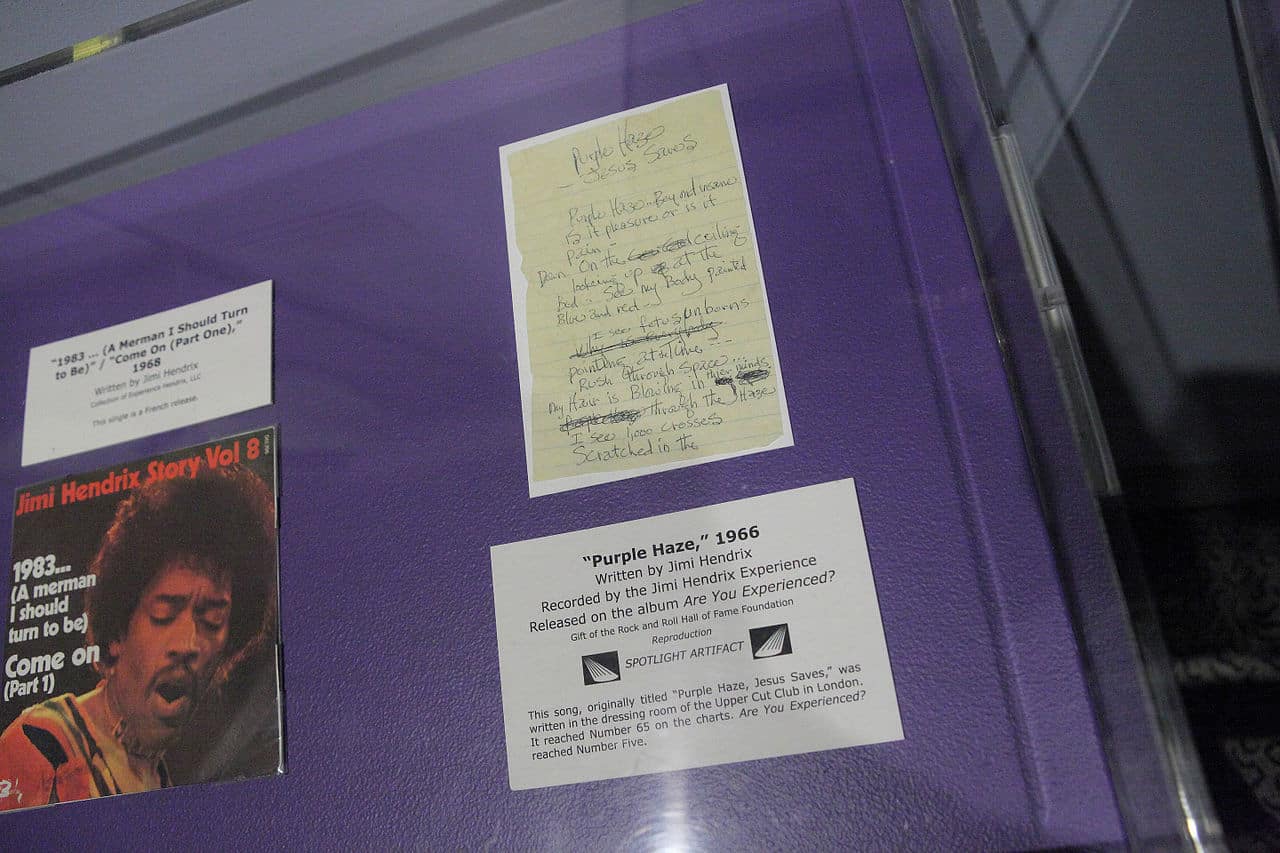 "1983 ... (A Merman I Should Turn
to Be)" / "Come On (Part One),"
1968
Written by Jimi Hendrix
Collection of Experience Hendrix, LLC
This single is a French release.
Jimi Hendrix Story Vol 8
1983...
(A merman
I should
turn to be)
Come on
(Part 1)
Purple Haze
- Jesus Saves
Purple Haze - Beyond insane
Is it pleasure or is it
pain -
Down on the ceiling
looking up at the
bed - See my Body painted
Blue and red -
I see fetus unborns
pointing at
Rush through Space
my Hair is Blowing in thier minds
through the Haze
I see 1,000 crosses
Scratched in the
"Purple Haze," 1966
Written by Jimi Hendrix
Recorded by the Jimi Hendrix Experience
Released on the album Are You Experienced?
Gift of the Rock and Roll Hall of Fame Foundation
Reproduction
SPOTLIGHT ARTIFACT
This song, originally titled "Purple Haze, Jesus Saves," was
written in the dressing room of the Upper Cut Club in London.
It reached Number 65 on the charts. Are You Experienced?
reached Number Five.